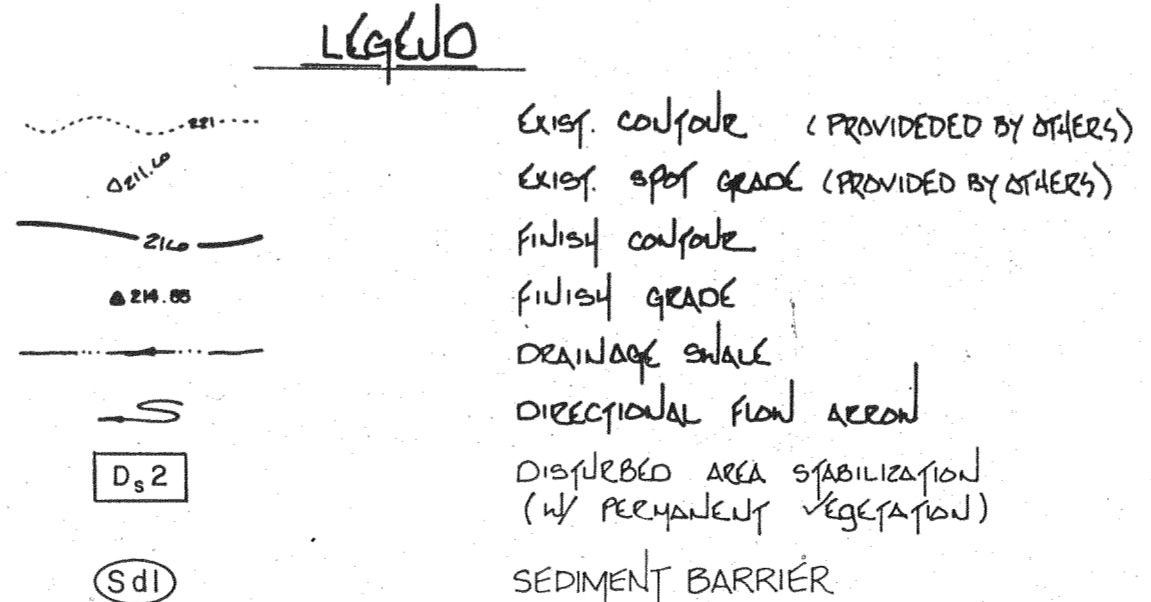 LEGEND
221 EXIST. CONTOUR (PROVIDEDED BY OTHERS)
211.6 EXIST. SPOT GRADE (PROVIDED BY OTHERS)
216 FINISH CONTOUR
214.85 FINISH GRADE
DRAINAGE SWALE
DIRECTIONAL FLOW ARROW
Ds2 DISTURBED AREA STABILIZATION
(W/ PERMANENT VEGETATION)
Sd1 SEDIMENT BARRIER